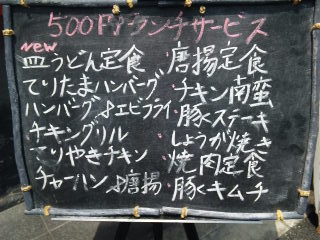 500円ランチサービス
new
皿うどん定食
てりたまハンバーグ
ハンバーグ&エビフライ
チキングリル
てりやきチキン
チャーハン&唐揚
唐揚定食
チキン南蛮
豚ステーキ
しょうが焼き
焼肉定食
豚キムチ